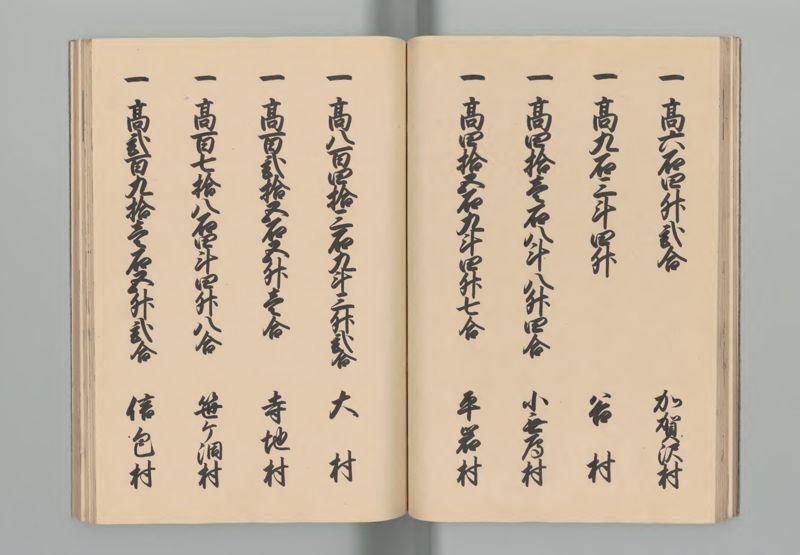 一 高六石四升弐合 加賀沢村
一 高九石三斗四升 谷村
一 高四拾壱石八斗八升四合 小無鳫村
一 高四拾五石九斗四升七合 平岩村
一 高八百四拾三石九斗三升弐合 大村
一 高百弐拾五石五升壱合 寺地村
一 高百七拾八石四斗四升八合 笹ケ洞村
一 高弐百九拾壱石五升弐合 信包村